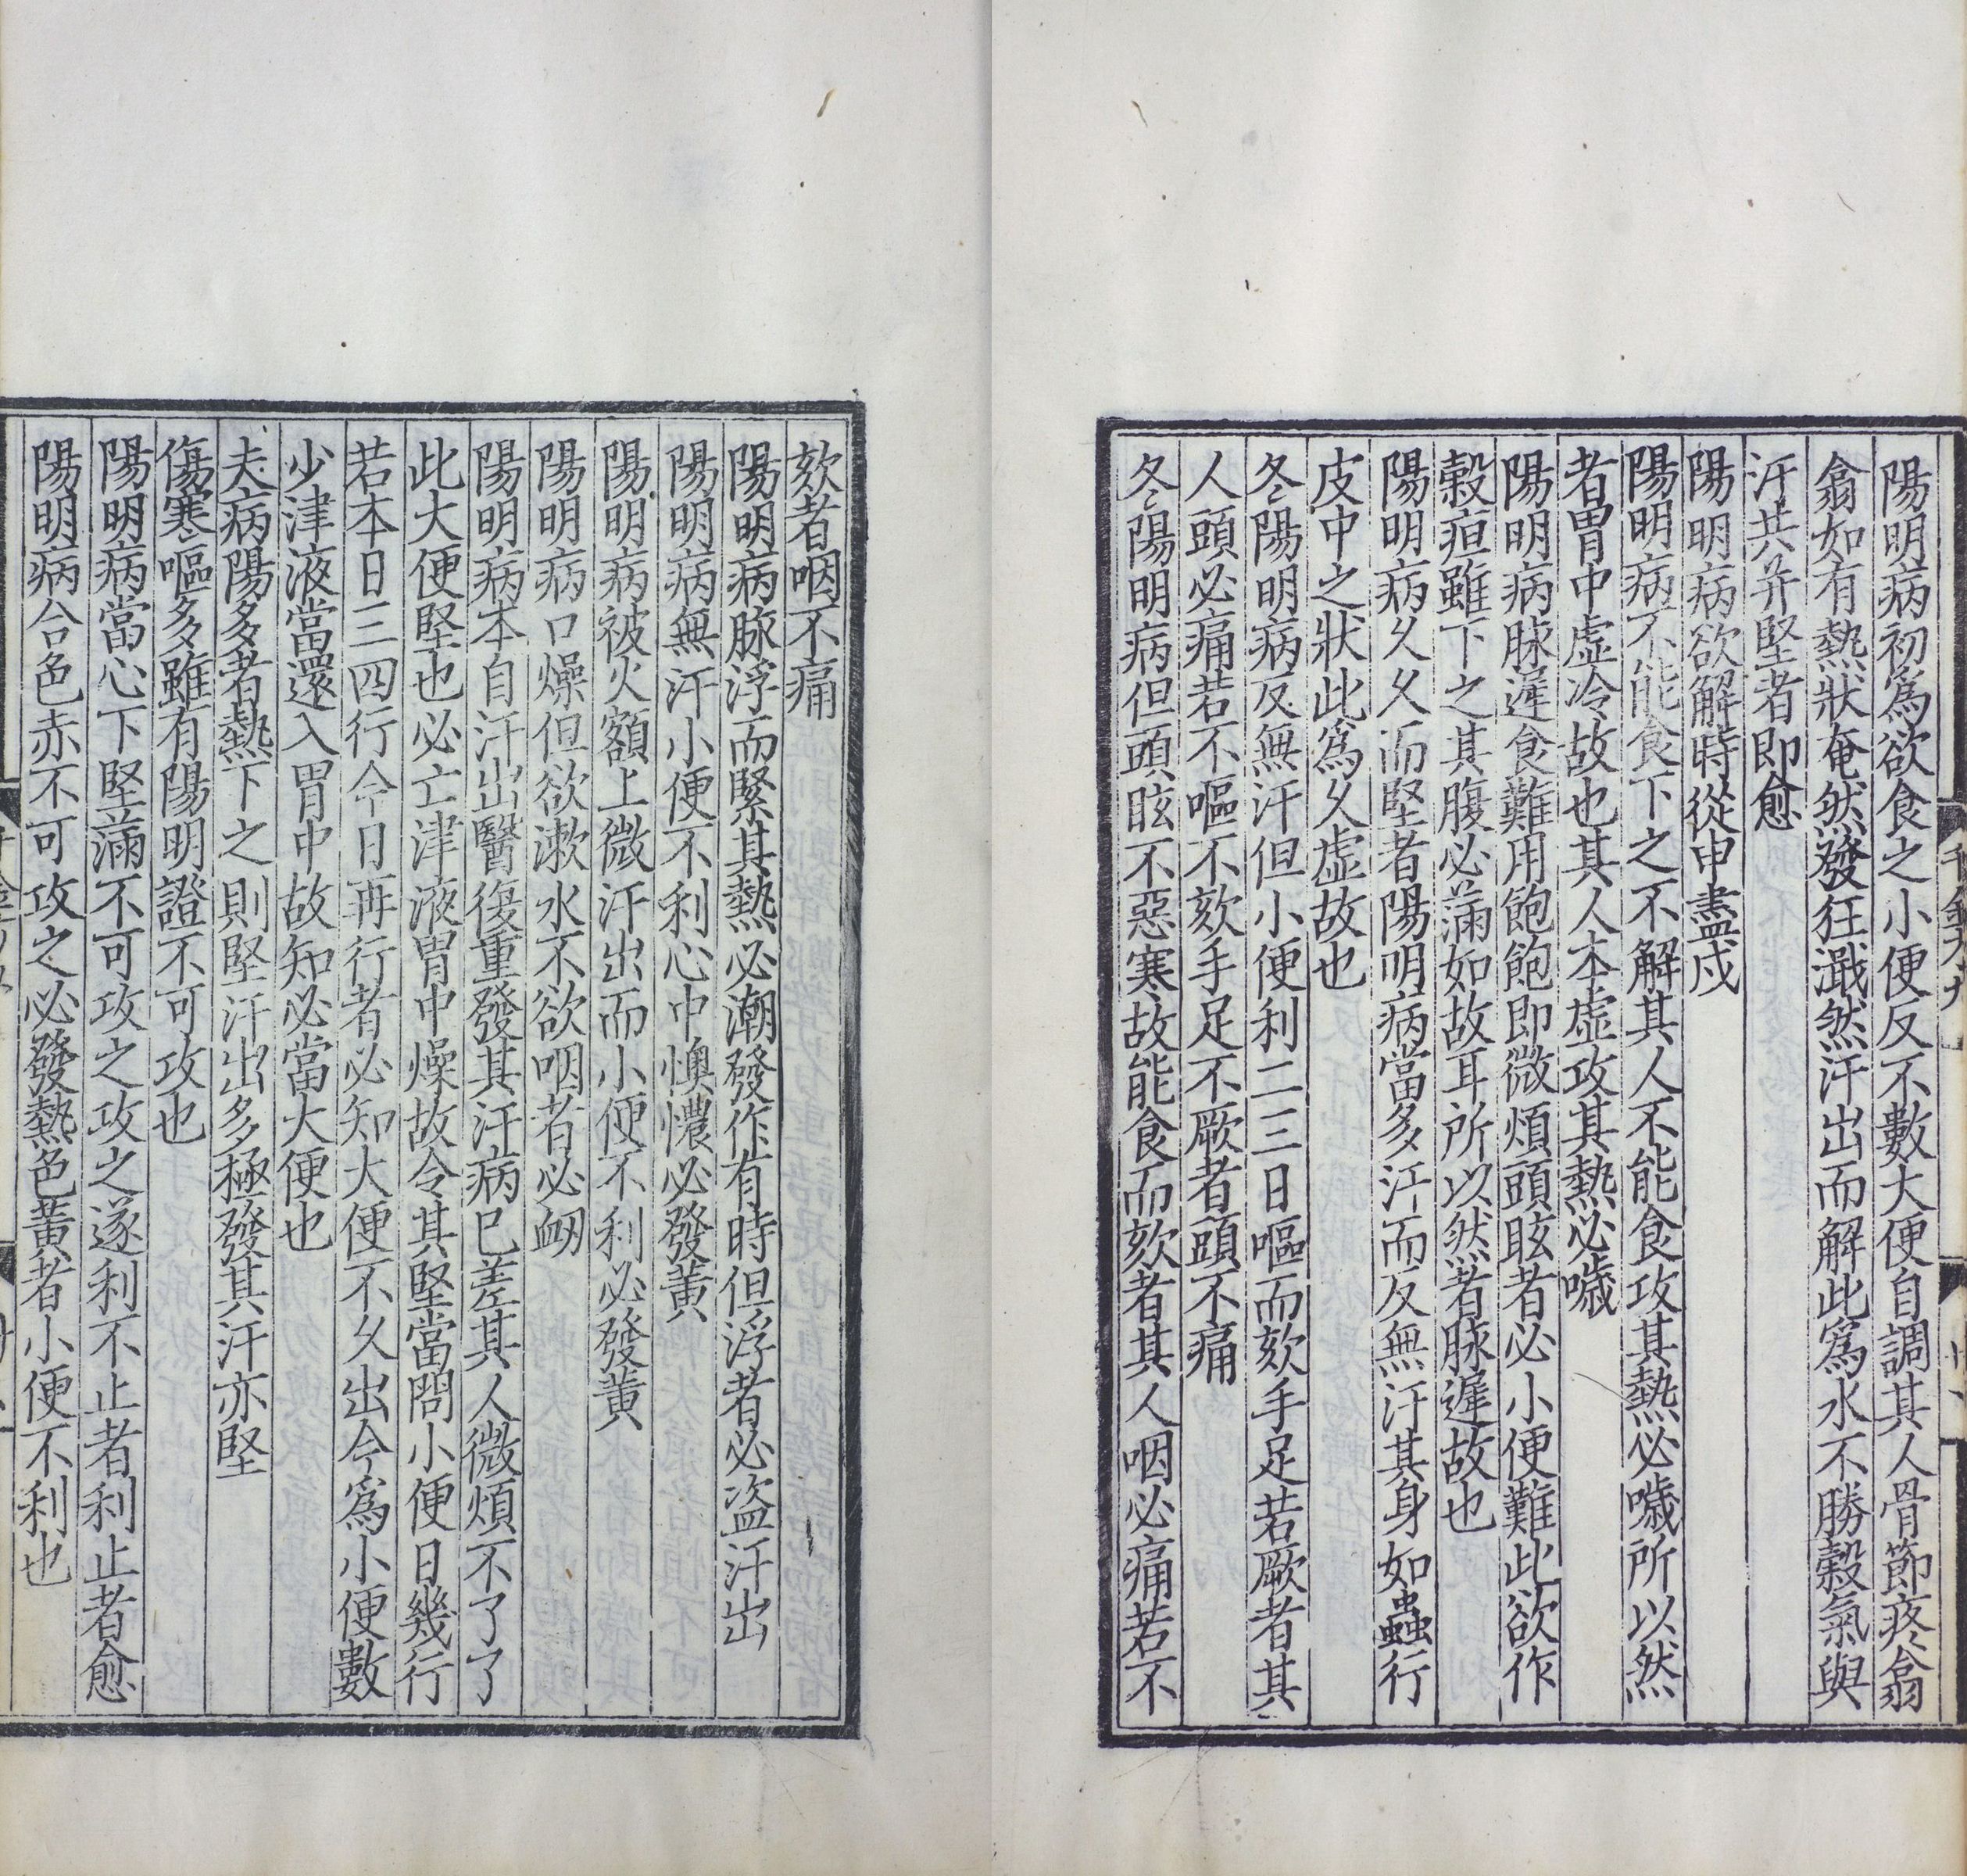 陽明病初爲欲食之小便反不數大便自調其人骨節疼翕
翕如有熱狀奄然發狂濈然汗出而解此爲水不勝穀氣與
汗共并堅者即愈
陽明病欲解時從申盡戌
陽明病不能食下之不解其人不能食攻其熱必噦所以然
者胃中虛冷故也其人本虛攻其熱必噦
陽明病脉遲食難用飽飽即微煩頭眩者必小便難此欲作
穀疸雖下之其腹必滿如故耳所以然者脉遲故也
陽明病久久而堅者陽明病當多汗而反無汗其身如蟲行
皮中之狀此爲久虛故也
冬陽明病反無汗但小便利二三日嘔而欬手足若厥者其
人頭必痛若不嘔不欬手足不厥者頭不痛
冬陽明病但頭眩不惡寒故能食而欬者其人咽必痛若不
欬者咽不痛
陽明病脉浮而緊其熱必潮發作有時但浮者必盗汗出
陽明病無汗小便不利心中懊憹必發黃
陽明病被火額上微汗出而小便不利必發黃
陽明病口燥但欲漱水不欲咽者必衂
陽明病本自汗出醫復重發其汗病已差其人微煩不了了
此大便堅也必亡津液胃中燥故令其堅當問小便日幾行
若本日三四行今日再行者必知大便不久出今爲小便數
少津液當還入胃中故知必當大便也
夫病陽多者熱下之則堅汗出多極發其汗亦堅
傷寒嘔多雖有陽明證不可攻也
陽明病當心下堅滿不可攻之攻之遂利不止者利止者愈
陽明病合色赤不可攻之必發熱色黃者小便不利也